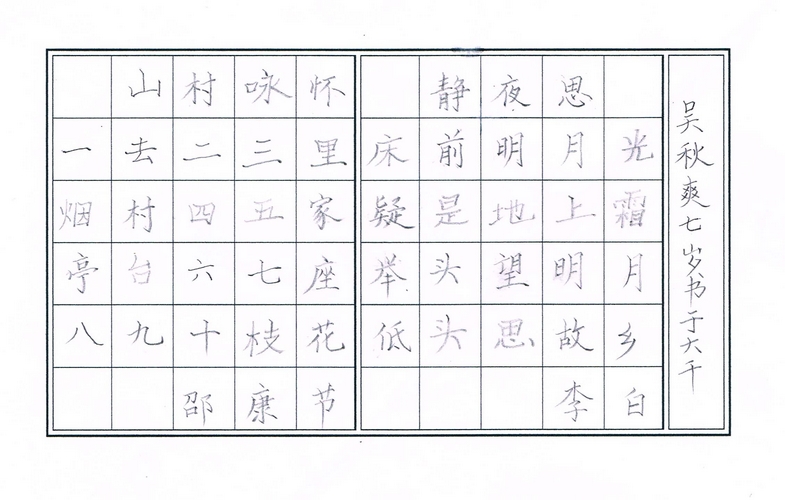 山村咏怀
一去二三里
烟村四五家
亭台六七座
八九十枝花
邵康节
静夜思
床前明月光
疑是地上霜
举头望明月
低头思故乡
李白
吴秋爽七岁书于大千